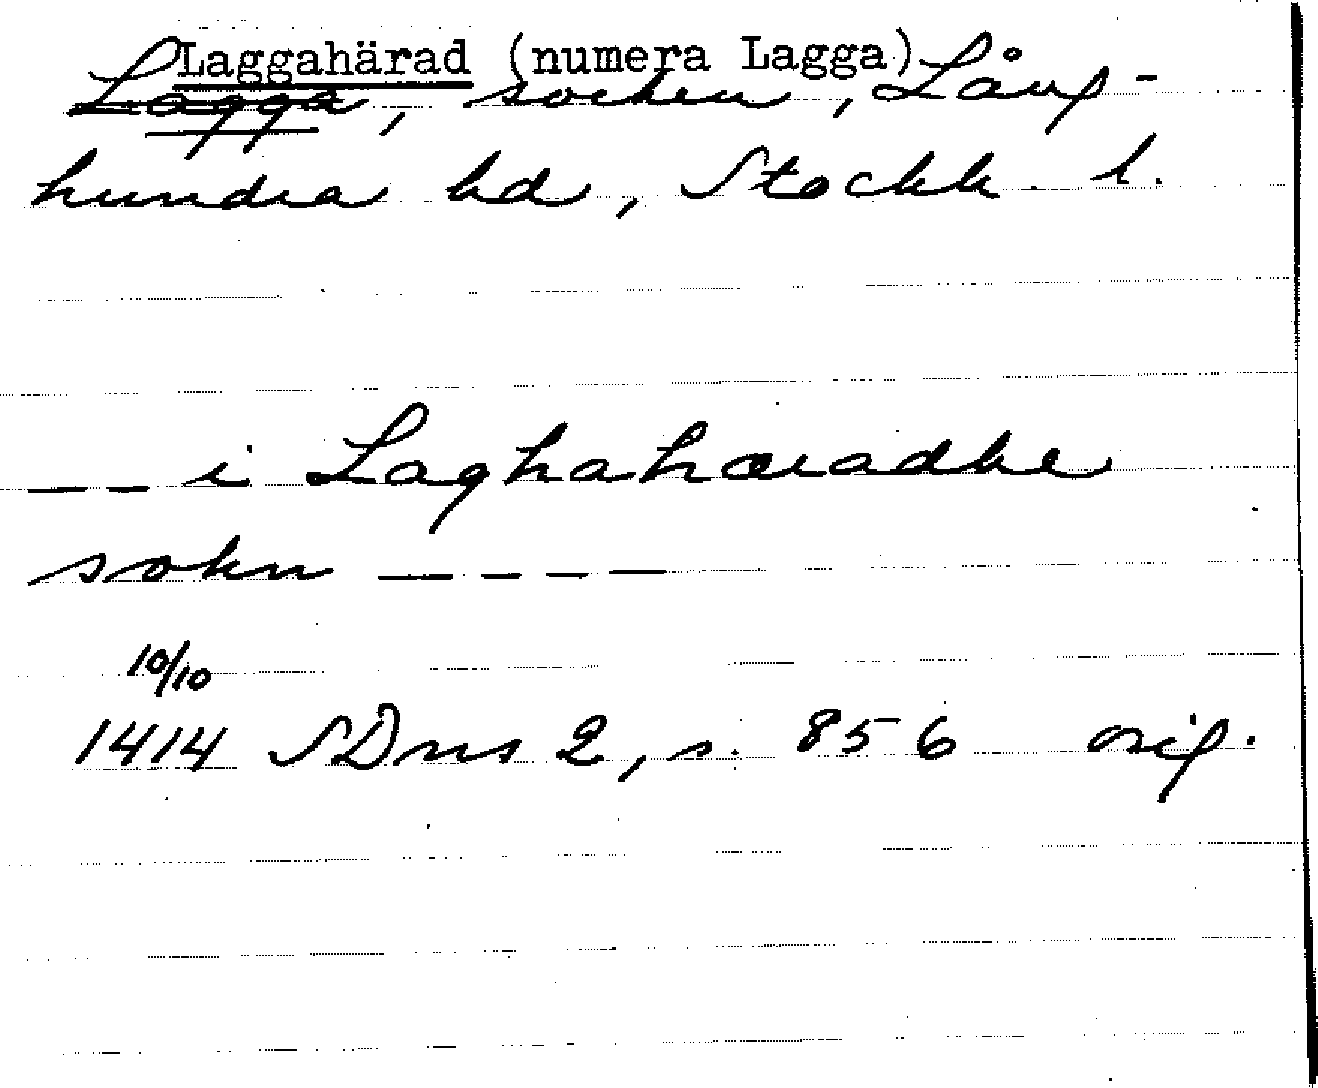 Laggahärad (numera Lagga)
Lagga, socken, Lång-
hundra hd, Stockh. l.
– – i Laghahæradhe
sokn – – – –
10/10
1414 SDns 2, s. 856 orig.